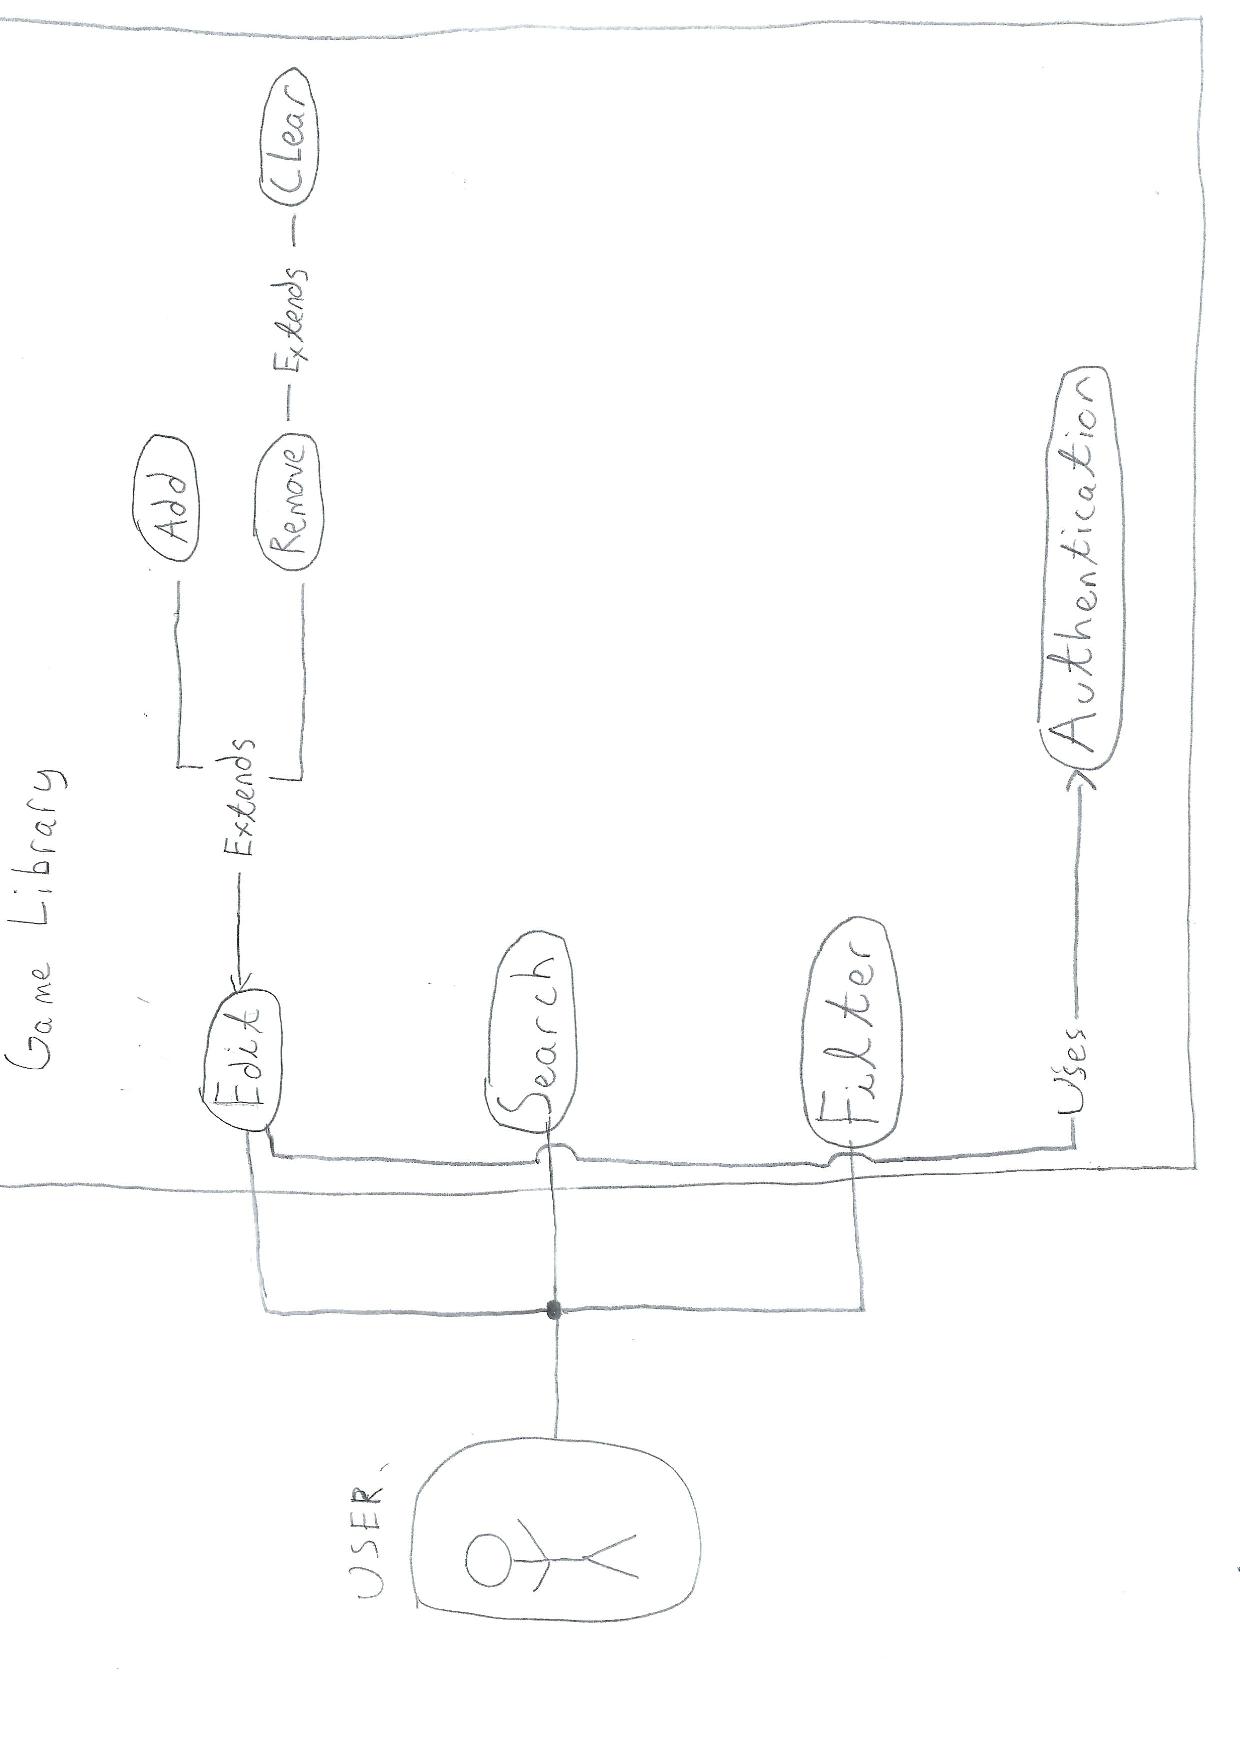 Game Library
Add
Edit
Extends
Remove
Extends
CLear
USER
Search
Filter
Uses
Authentication